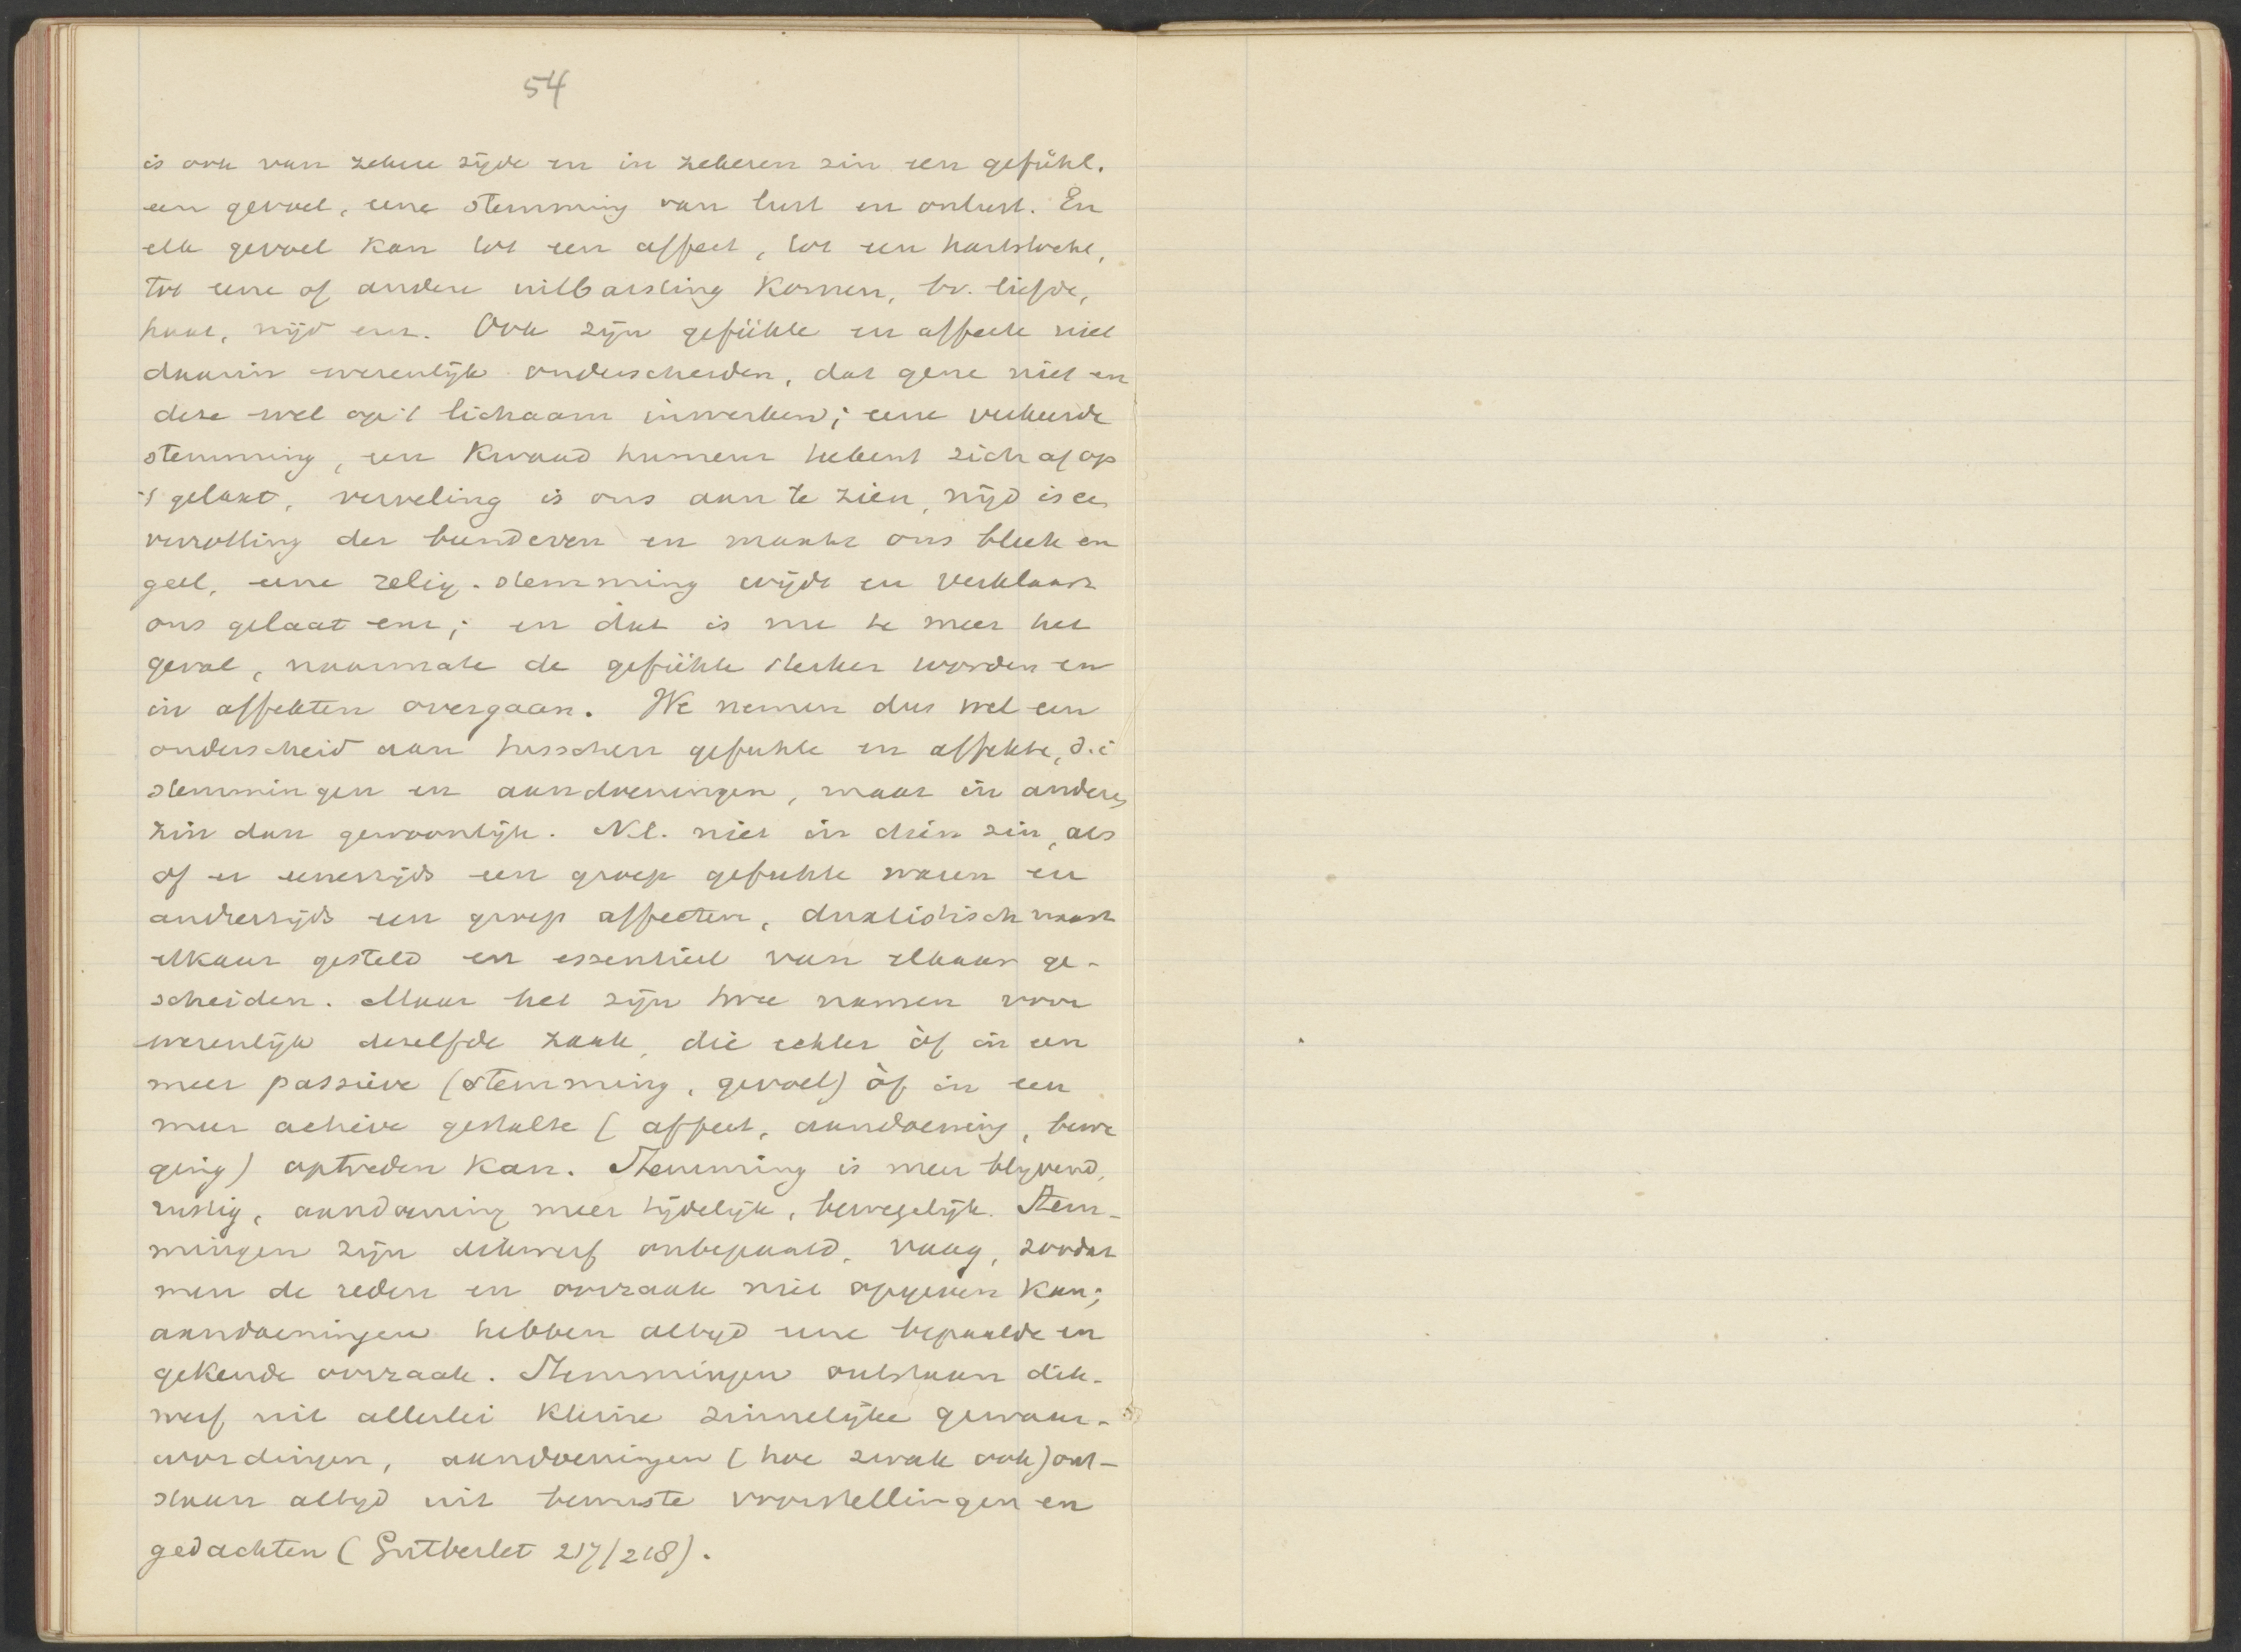 54
is ook van zekere zijde en in zekeren zin een gefühl.
een gevoel, eene stemming van lust en onlust. En
elk gevoel kan tot een affect, tot een hartstocht,
tot eene of andere uitbarsting komen, bv. liefde,
haat, nijd enz. Ook zijn gefühle en affecte niet
daarin wezenlijk onderscheiden, dat gene niet en
deze wel op 't lichaam inwerken; eene verkeerde
stemming, een kwaad humeur teekent zich af op
't gelaat, verveling is ons aan te zien, nijd is een
verrotting der beenderen en maakt ons bleek en
geel, eene relig. stemming wijdt en verklaart
ons gelaat enz; en dat is nu te meer het
geval, naarmate de gefühle sterker worden en
in affekten overgaan. We nemen dus wel een
onderscheid aan tusschen gefuhle en affekte, d.i
stemmingen en aandoeningen, maar in anderen
zin dan gewoonlijk. Nl. niet in dien zin, als
of er eenerzijds een groep gefuhle waren en
anderzijds een groep affecten, dualistisch naast
elkaar gesteld en essentieel van elkaar ge-
scheiden. Maar het zijn twee namen voor
wezenlijk dezelfde zaak, die echter òf in een
meer passieve (stemming, gevoel) òf in een
meer actieve gestalte (affect, aandoening, bewe
ging) optreden kan. Stemming is meer blijvend,
rustig, aandoening meer tijdelijk, bewegelijk. Stem-
mingen zijn dikwerf onbepaald, vaag, zoodat
men de reden en oorzaak niet opgeven kan;
aandoeningen hebben altijd eene bepaalde en
gekende oorzaak. Stemmingen ontstaan dik-
werf uit allerlei kleine zinnelijke gewaar-
wordingen, aandoeningen (hoe zwak ook) ont-
staan altijd uit bewuste voorstellingen en
gedachten (Gutberlet 217/218).